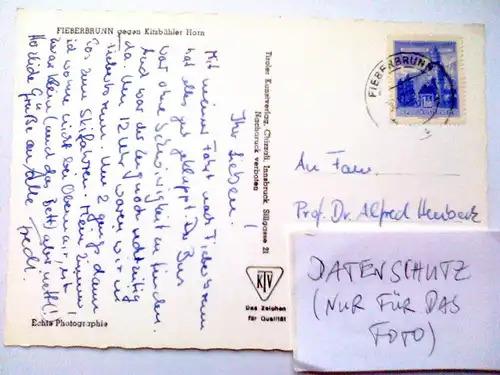 FIEBERBRUNN gegen Kitzbühler Horn
Ihr Lieben!
Mit meiner Fahrt nach Fieberbrunn
hat alles gut geklappt. Der Bus
war ohne Schwierigkeit zu finden.
Und war der Zug noch rechtzeitig
da. Um 12 Uhr waren wir in
Fieberbrunn. Um 2 ging's dann
los zum Skifahren. Mein Zimmer
ich wohne nicht bei Obermair, ist
zwar klein (und das Bett) aber nett!
Herzliche Grüße an Alle
Echte Photographie
Tiroler Kunstverlag, Chizzali, Innsbruck, Sillgasse 21
Nachdruck verboten
KTV
Das Zeichen
für Qualität
FIEBERBRUNN
An Fam.
Prof. Dr. Alfred Heubeck
DATENSCHUTZ
(NUR FÜR DAS
FOTO)